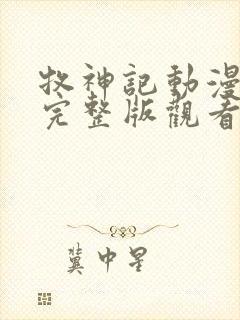 牧神記動漫
完整版觀看
冀中星